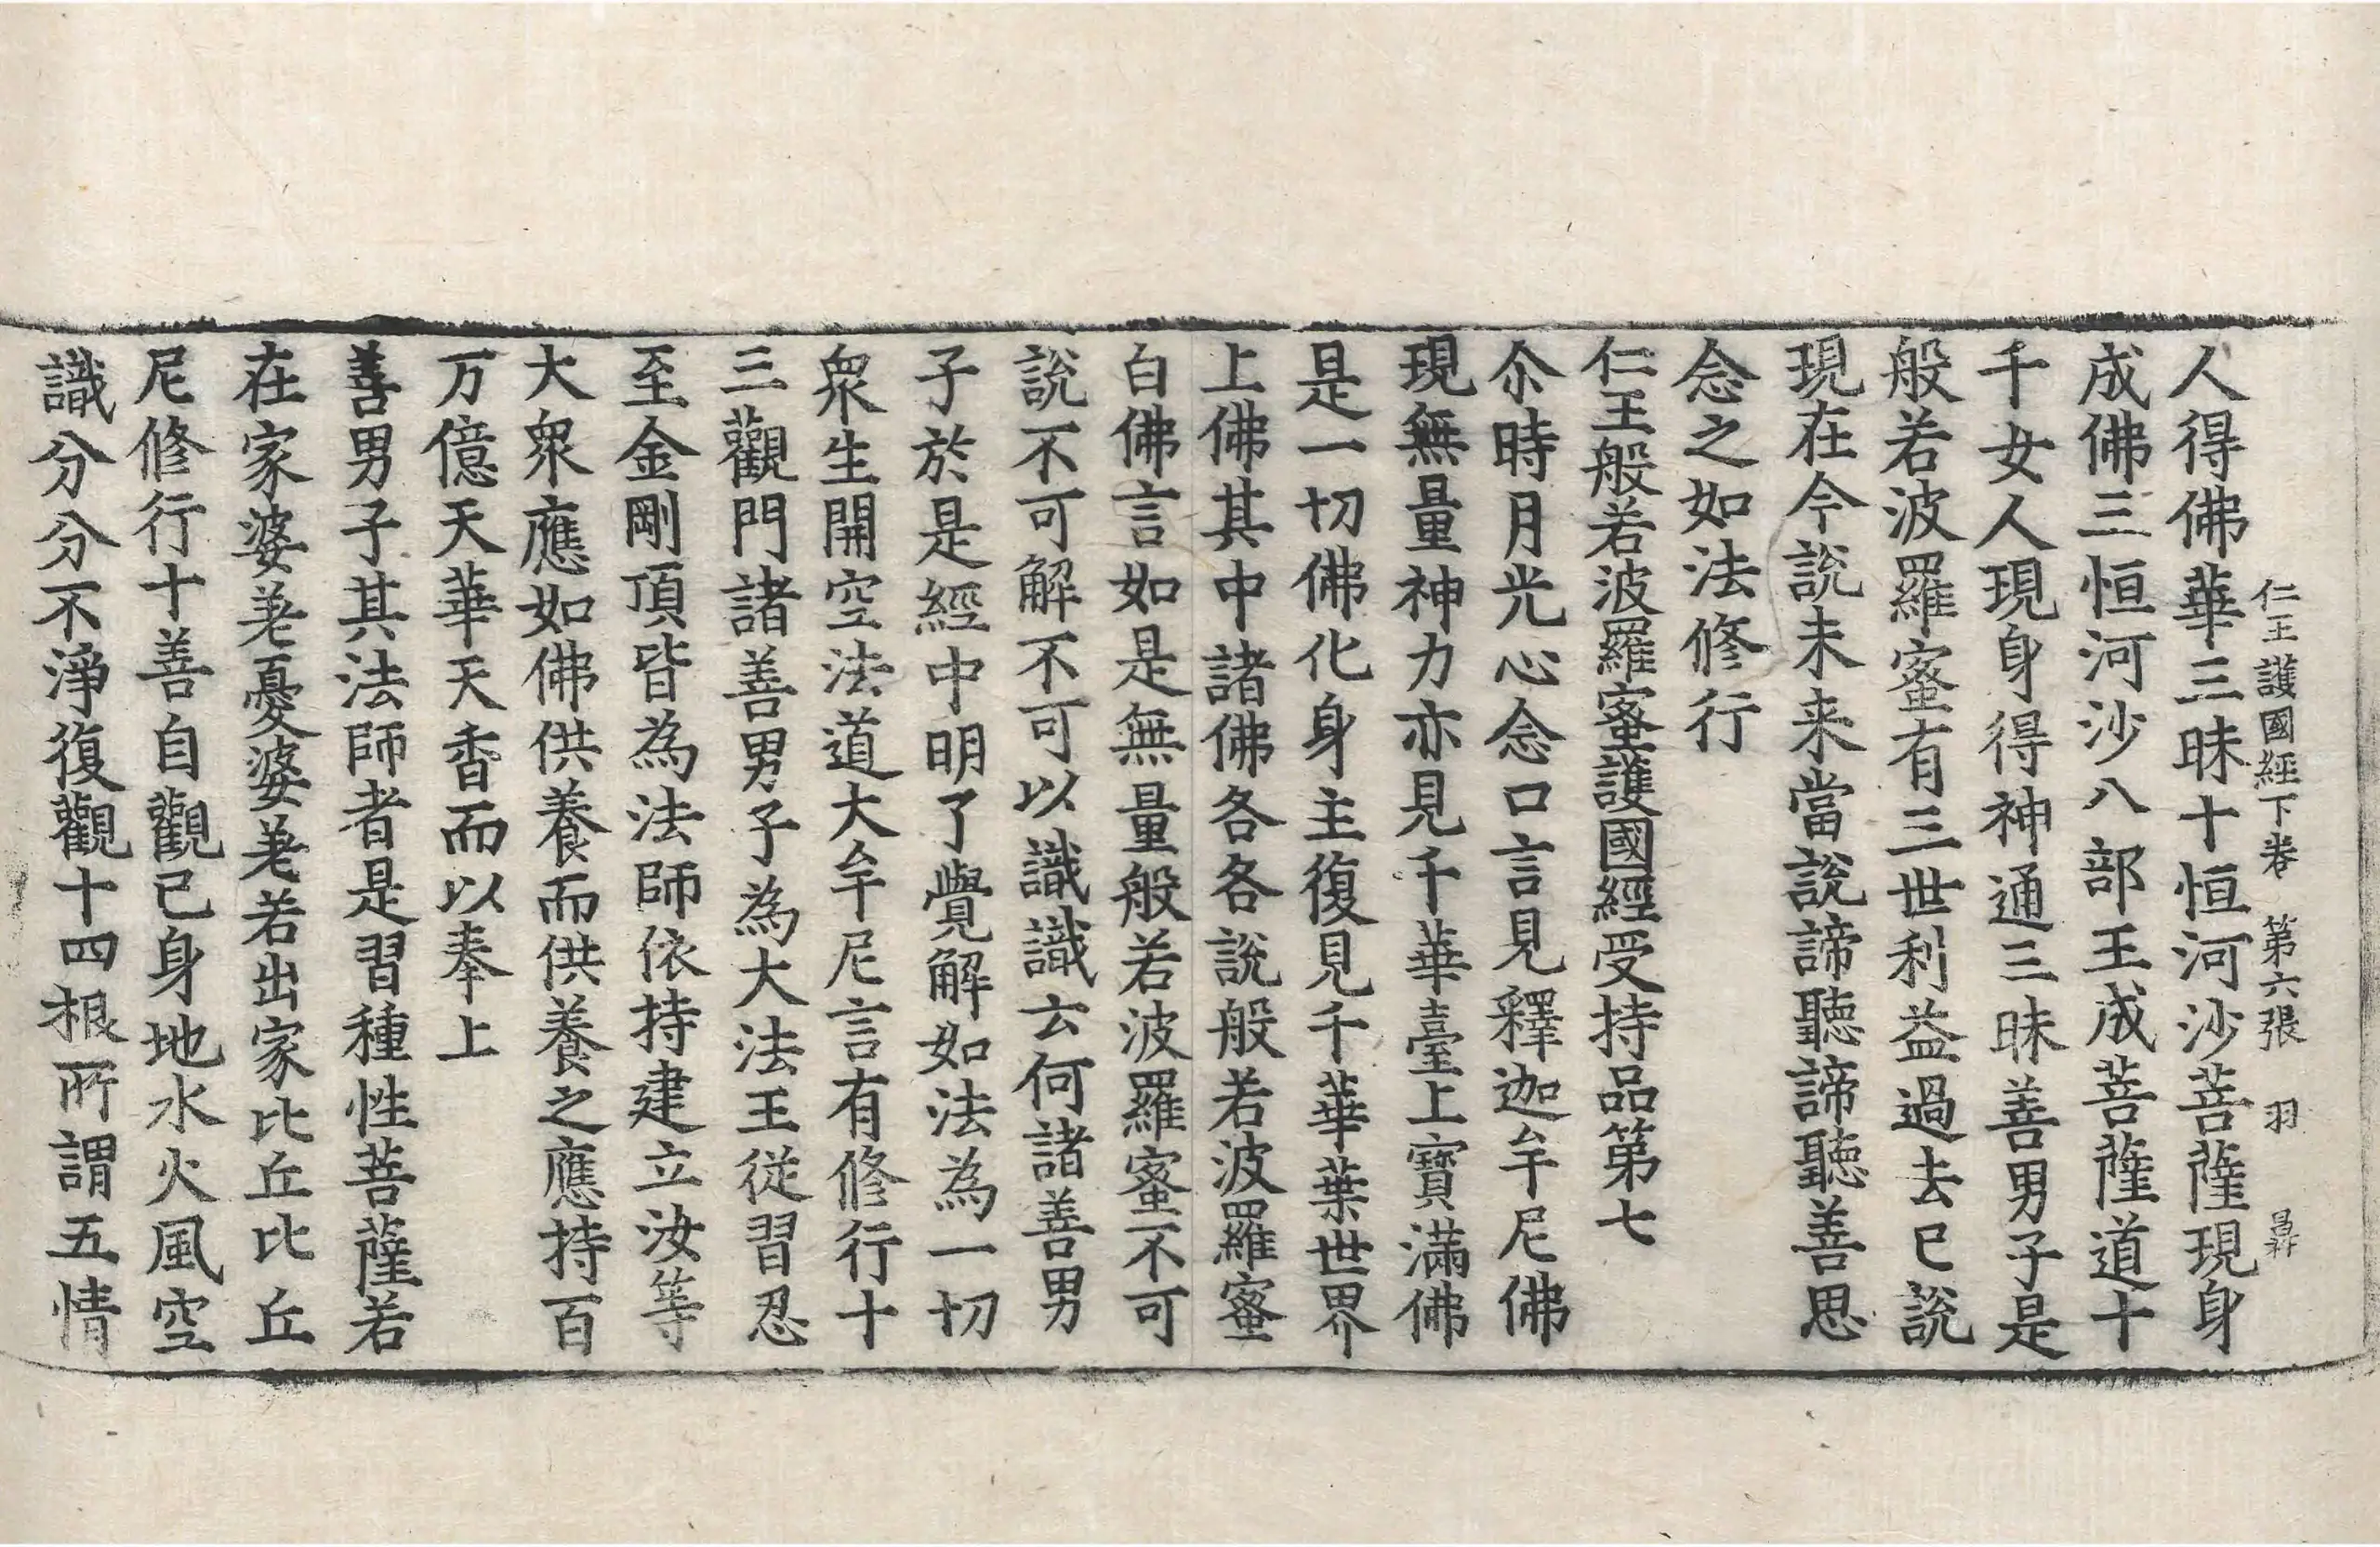 仁王護國經下卷 第六張 羽
人得佛華三昧十恒河沙菩薩現身
成佛三恒河沙八部王成菩薩道十
千女人現身得神通三昧善男子是
般若波羅蜜有三世利益過去已說
現在今說未来當說諦聽諦聽善思
念之如法修行
仁王般若波羅蜜護國經受持品第七
尒時月光心念口言見釋迦牟尼佛
現無量神力亦見千華臺上寶滿佛
是一切佛化身主復見千華葉世界
上佛其中諸佛各各說般若波羅蜜
白佛言如是無量般若波羅蜜不可
說不可解不可以識識云何諸善男
子於是經中明了覺解如法為一切
衆生開空法道大牟尼言有修行十
三觀門諸善男子為大法王從習忍
至金剛頂皆為法師依持建立汝等
大衆應如佛供養而供養之應持百
万億天華天香而以奉上
善男子其法師者是習種性菩薩若
在家婆差憂婆差若出家比丘比丘
尼修行十善自觀己身地水火風空
識分分不淨復觀十四根所謂五情